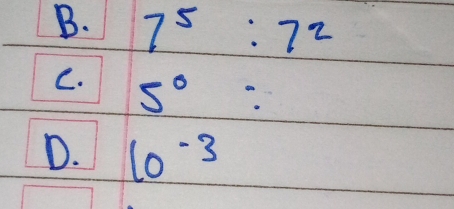 B. 7⁵ : 7²
C. 5⁰ :
D. 10⁻³